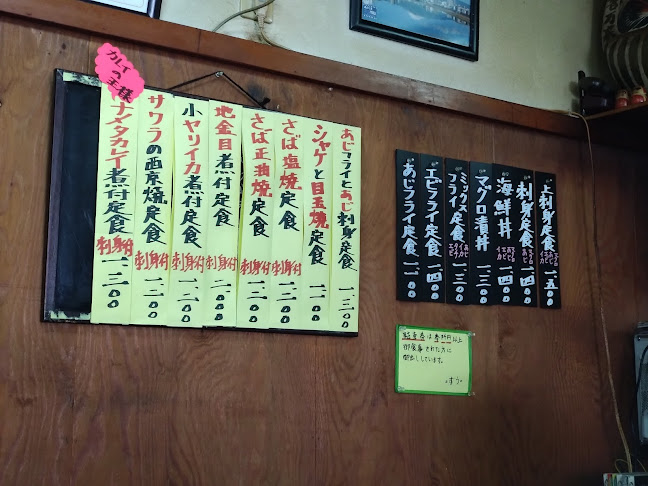 上刺身定食 一五〇〇
刺身定食 一四〇〇
海鮮丼 一四〇〇
マグロ漬丼 一三〇〇
ミックスフライ定食 一三〇〇
エビフライ定食 一四〇〇
あじフライ定食 一一〇〇
あじフライとあじ刺身定食 一三〇〇
シャケと目玉焼定食 一一〇〇
さば塩焼定食 刺身付 一二〇〇
さば正油焼定食 刺身付 一二〇〇
地金目煮付定食 刺身付
小ヤリイカ煮付定食 刺身付 一二〇〇
サワラの西京焼定食 刺身付 一二〇〇
カレイの王様
ナメタカレイ煮付定食 刺身付 一三〇〇
駐車券は 以上
御食事された方に
しています。